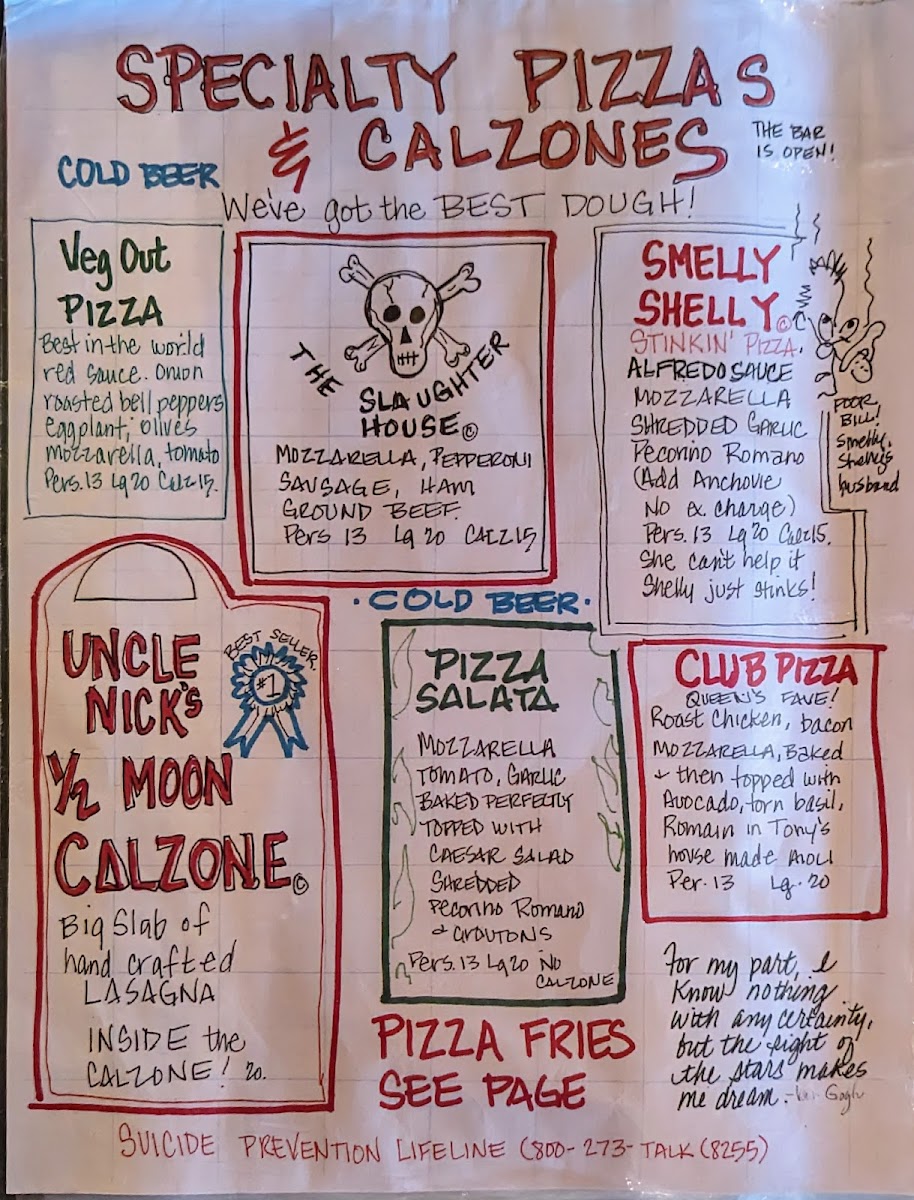 SPECIALTY PIZZAS
& CALZONES
THE BAR
IS OPEN!
COLD BEER
We've got the BEST DOUGH!
Veg Out
PIZZA
Best in the world
red sauce. Onion
roasted bell peppers
eggplant, olives
Mozzarella, tomato
Pers. 13 Lg 20 Calz 15.
THE
SLAUGHTER
HOUSE ©
MOZZARELLA, PEPPERONI
SAUSAGE, HAM
GROUND BEEF.
Pers. 13 Lg 20 CALZ 15
SMELLY
SHELLY ©
STINKIN' PIZZA.
ALFREDO SAUCE
MOZZARELLA
SHREDDED GARLIC
Pecorino Romano
(Add Anchovie
No ex. charge)
Pers. 13 Lg 20 Calz 15.
She can't help it
Shelly just stinks!
POOR
BILL!
Smelly
Shelly's
husband
UNCLE
NICK'S
1/2 MOON
CALZONE ©
BEST SELLER.
#1
Big Slab of
hand crafted
LASAGNA
INSIDE the
CALZONE! 20.
· COLD BEER ·
PIZZA
SALATA
MOZZARELLA
TOMATO, GARLIC
BAKED PERFECTLY
TOPPED WITH
CAESAR SALAD
SHREDDED
Pecorino Romano
& CROUTONS
Pers. 13 Lg 20 NO
CALZONE
CLUB PIZZA
QUEEN'S FAVE!
Roast Chicken, bacon
MOZZARELLA, Baked
& then topped with
Avocado, torn basil,
Romain in Tony's
house made AIOLI
Per. 13 Lg. 20
PIZZA FRIES
SEE PAGE
For my part, I
Know nothing
with any certainty,
but the sight of
the stars makes
me dream. - Van Gogh
SUICIDE PREVENTION LIFELINE (800-273-TALK (8255)